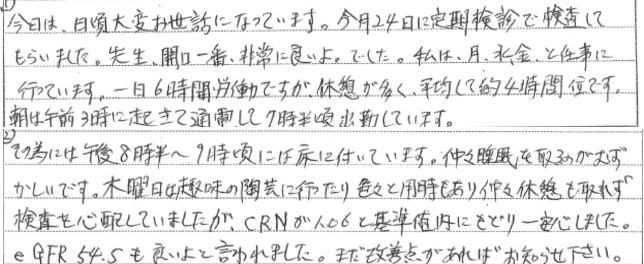 ①
今日は、日頃大変お世話になっています。今月24日に定期検診で検査して
もらいました。先生、開口一番、非常に良いよ。でした。私は、月、水、金、と仕事に
行っています。一日6時間労働ですが、休憩が多く、平均して約4時間位です。
朝は午前3時に起きて通電して7時半頃出勤しています。
②
その為には午後8時半〜9時頃には床に付いています。仲々睡眠を取るのがむず
かしいです。木曜日は趣味の陶芸に行ったり色々と用時もあり仲々休憩も取れず
検査を心配していましたが、CRNが1.06と基準値内にもどり一安心しました。
eGFR 54.5も良いよと言われました。まだ改善点があればお知らせ下さい。